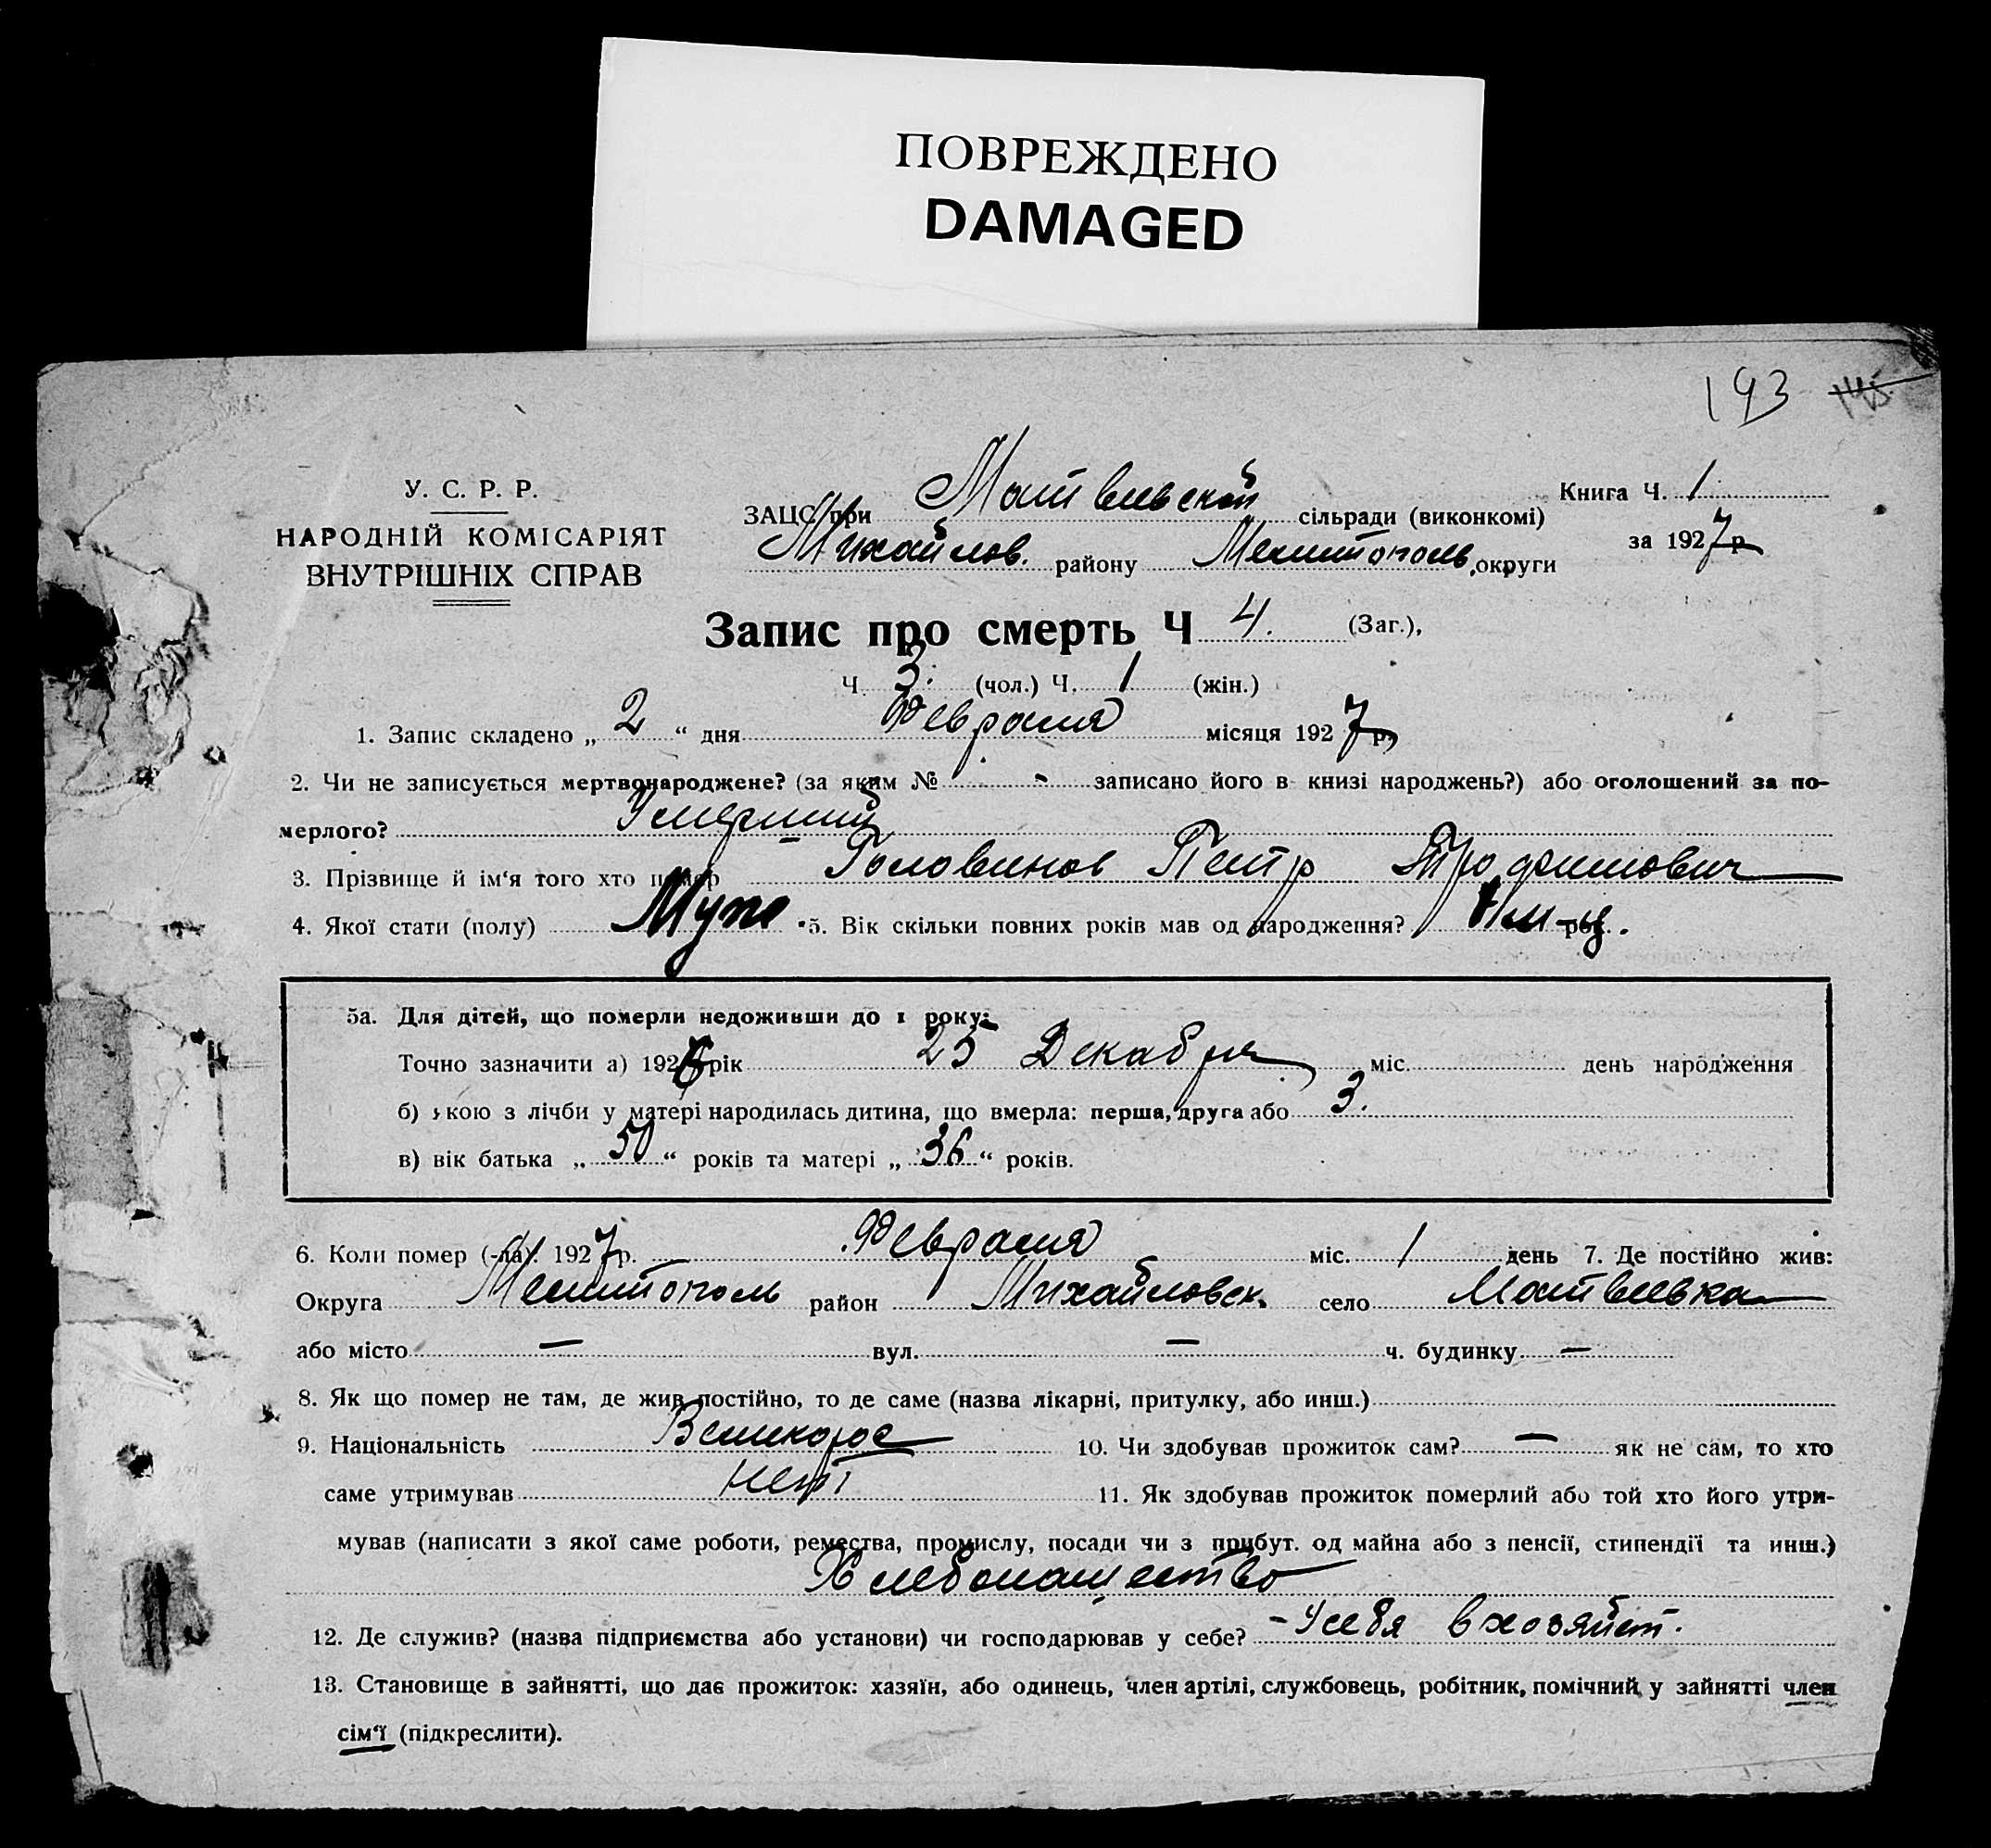 ПОВРЕЖДЕНО
DAMAGED
193
У. С. Р. Р.
НАРОДНІЙ КОМІСАРІЯТ
ВНУТРІШНІХ СПРАВ
ЗАЦС при Матвеевской сільради (виконкомі)
Михайлов. району Мелитополь. округи
Книга Ч. 1
за 1927 р
Запис про смерть Ч 4. (Заг.),
Ч. 3. (чол.) Ч. 1 (жін.)
1. Запис складено „ 2 “ дня Февраля місяця 1927 р.
2. Чи не записується мертвонароджене? (за яким № - записано його в книзі народжень?) або оголошений за по-
мерлого? Умерший
3. Прізвище й ім‘я того хто помер Головинов Петр Трофимович
4. Якої стати (полу) Муж 5. Вік скільки повних років мав од народження? рок.
5а. Для дітей, що померли недоживши до 1 року:
Точно зазначити а) 1926 рік 25 Декабря міс. день народження
б) якою з лічби у матері народилась дитина, що вмерла: перша, друга або 3.
в) вік батька „ 50 “ років та матері „ 36 “ років.
6. Коли помер (-ла). 1927 р. Февраля міс. 1 день 7. Де постійно жив:
Округа Мелитополь район Михайловск. село Матвеевка
або місто — вул. — ч. будинку —
8. Як що помер не там, де жив постійно, то де саме (назва лікарні, притулку, або инш.)
9. Національність Великорос 10. Чи здобував прожиток сам? — як не сам, то хто
саме утримував 11. Як здобував прожиток померлий або той хто його утри-
мував (написати з якої саме роботи, ремества, промислу, посади чи з прибут. од майна або з пенсії, стипендії та инш.)
Хлебопашество
12. Де служив? (назва підприємства або установи) чи господарював у себе? - У себя в хозяйст.
13. Становище в зайнятті, що дає прожиток: хазяїн, або одинець, член артілі, службовець, робітник, помічний у зайнятті член
сім‘ї (підкреслити).